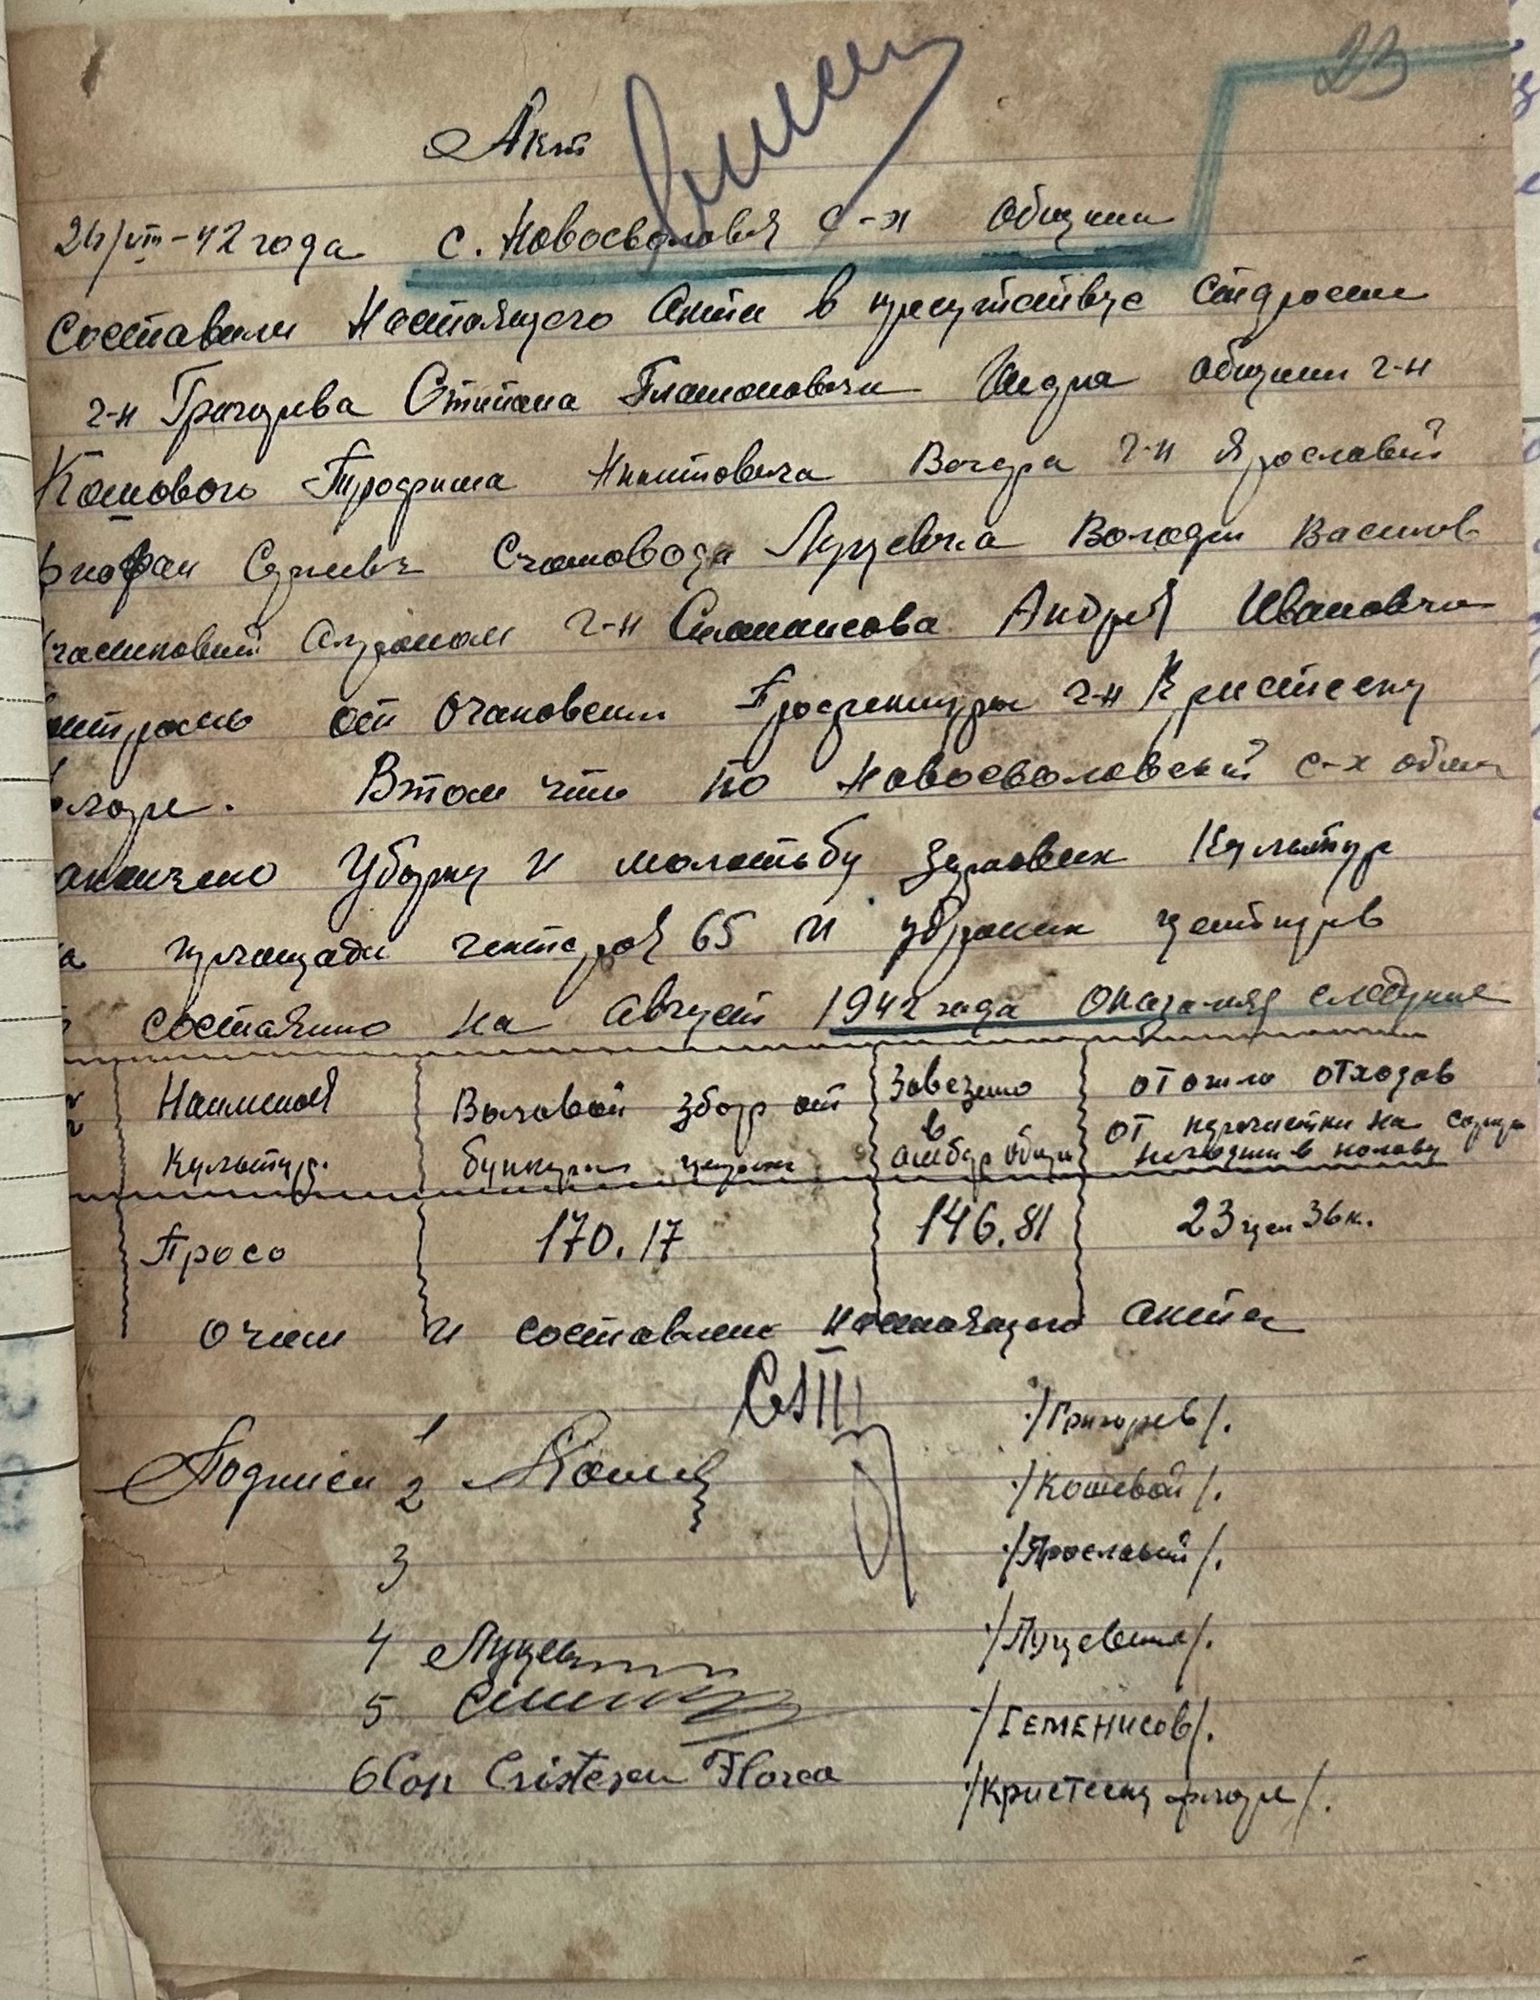 23
Акт
24/VIII-42 года с. Новосволовка с-х Общини
Составили Настоящего Акта в присутствує Старости
г-н Григорьва Стипана Платоновича Шефа Общини г-н
Кошового Трофима Никитовича г-н Ярославий
Счетовода Луцевича Володи Васильов
Агроном г-н Андрея Ивановича
от Очаковскои Профектуры г-н Кристеску
Втом что по Новосволовский с-х общи
Уборку и молотьбу зерновых Культур
площади гектароя 65 и убраных центнеров
состаянию на Август 1942 года оказалися следующие
Наименоя Валовой збор от Завезено отошло отходов
в от перочистки на
Культур. бункера центн амбар Общи в полову
Просо 170.17 146.81 23 цен 36 к.
О чем и составлено настоящего акта
Подписи 1 /Григорьев/.
2 Кошев /Кошевой/.
3 /Ярославий/.
4 Луцев /Луцевича/.
5 /СЕМЕНИСОВ/.
6 Con Cristescu Florea /Кристеску Флоря/.